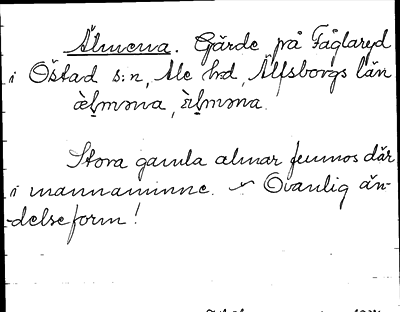 Älmena. Gärde på Fåglaryd
i Östad s:n, Ale hd, Älfsborgs län
Stora gamla almar funnos där
i mannaminne. Ovanlig än-
delseform!